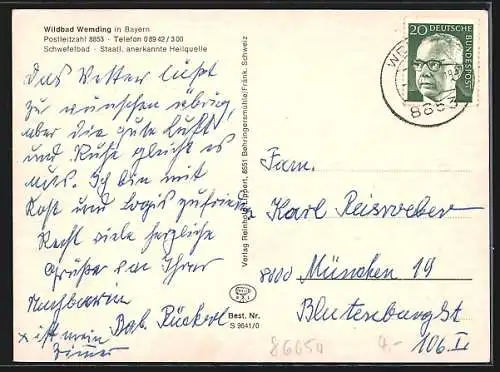 Wildbad Wemding in Bayern
Postleitzahl 8853 · Telefon 08942/300
Schwefelbad · Staatl. anerkannte Heilquelle
Das Wetter läßt
zu wünschen übrig,
aber die gute Luft
und Ruhe gleicht es
aus. Ich bin mit
Kost und Logis zufrieden
Recht viele herzliche
Grüße an Ihrer
Nachbarin
Bab. Rückerl
x ist mein
Zimmer
Verlag Reinhold Lippert, 8551 Behringersmühle/Fränk. Schweiz
Best. Nr.
S 9641/0
20 DEUTSCHE
BUNDESPOST
8853
Fam.
Karl Reisweber
8000 München 19
Blutenburgst
106 I
86650
4.-